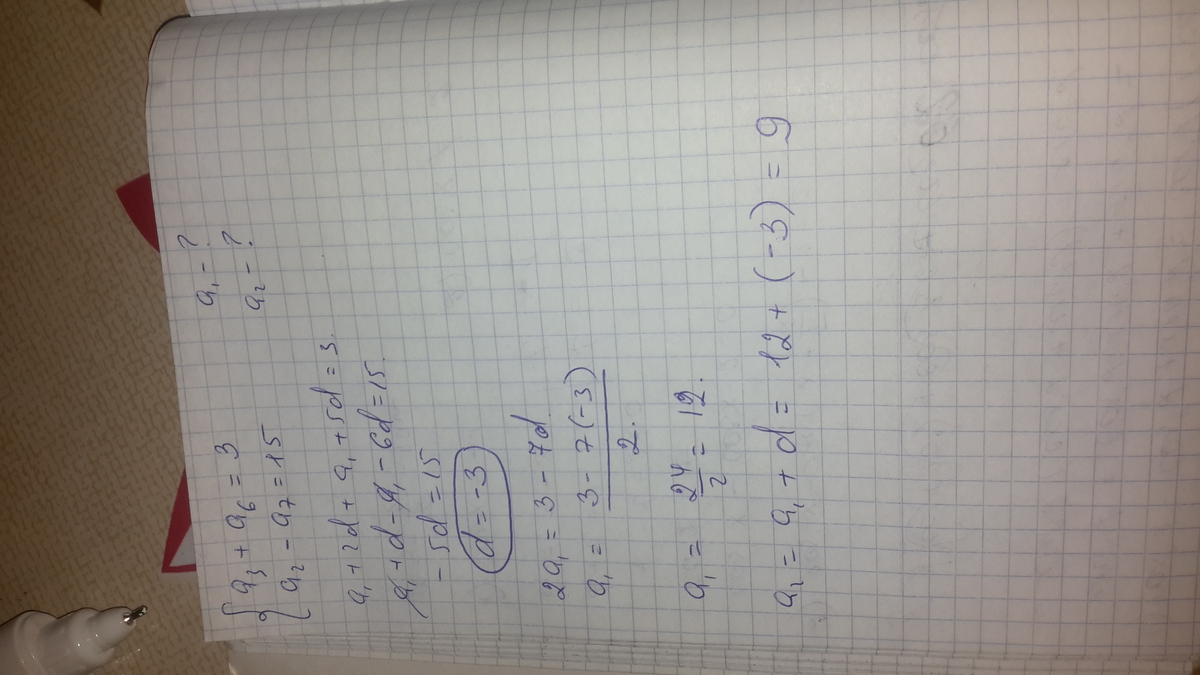 { a₃ + a₆ = 3      a₁ - ?
a₂ - a₇ = 15      a₂ - ?
a₁ + 2d + a₁ + 5d = 3.
a₁ + d - a₁ - 6d = 15.
- 5d = 15
d = -3
2a₁ = 3 - 7d
a₁ = 3 - 7(-3) / 2.
a₁ = 24/2 = 12.
a₂ = a₁ + d = 12 + (-3) = 9